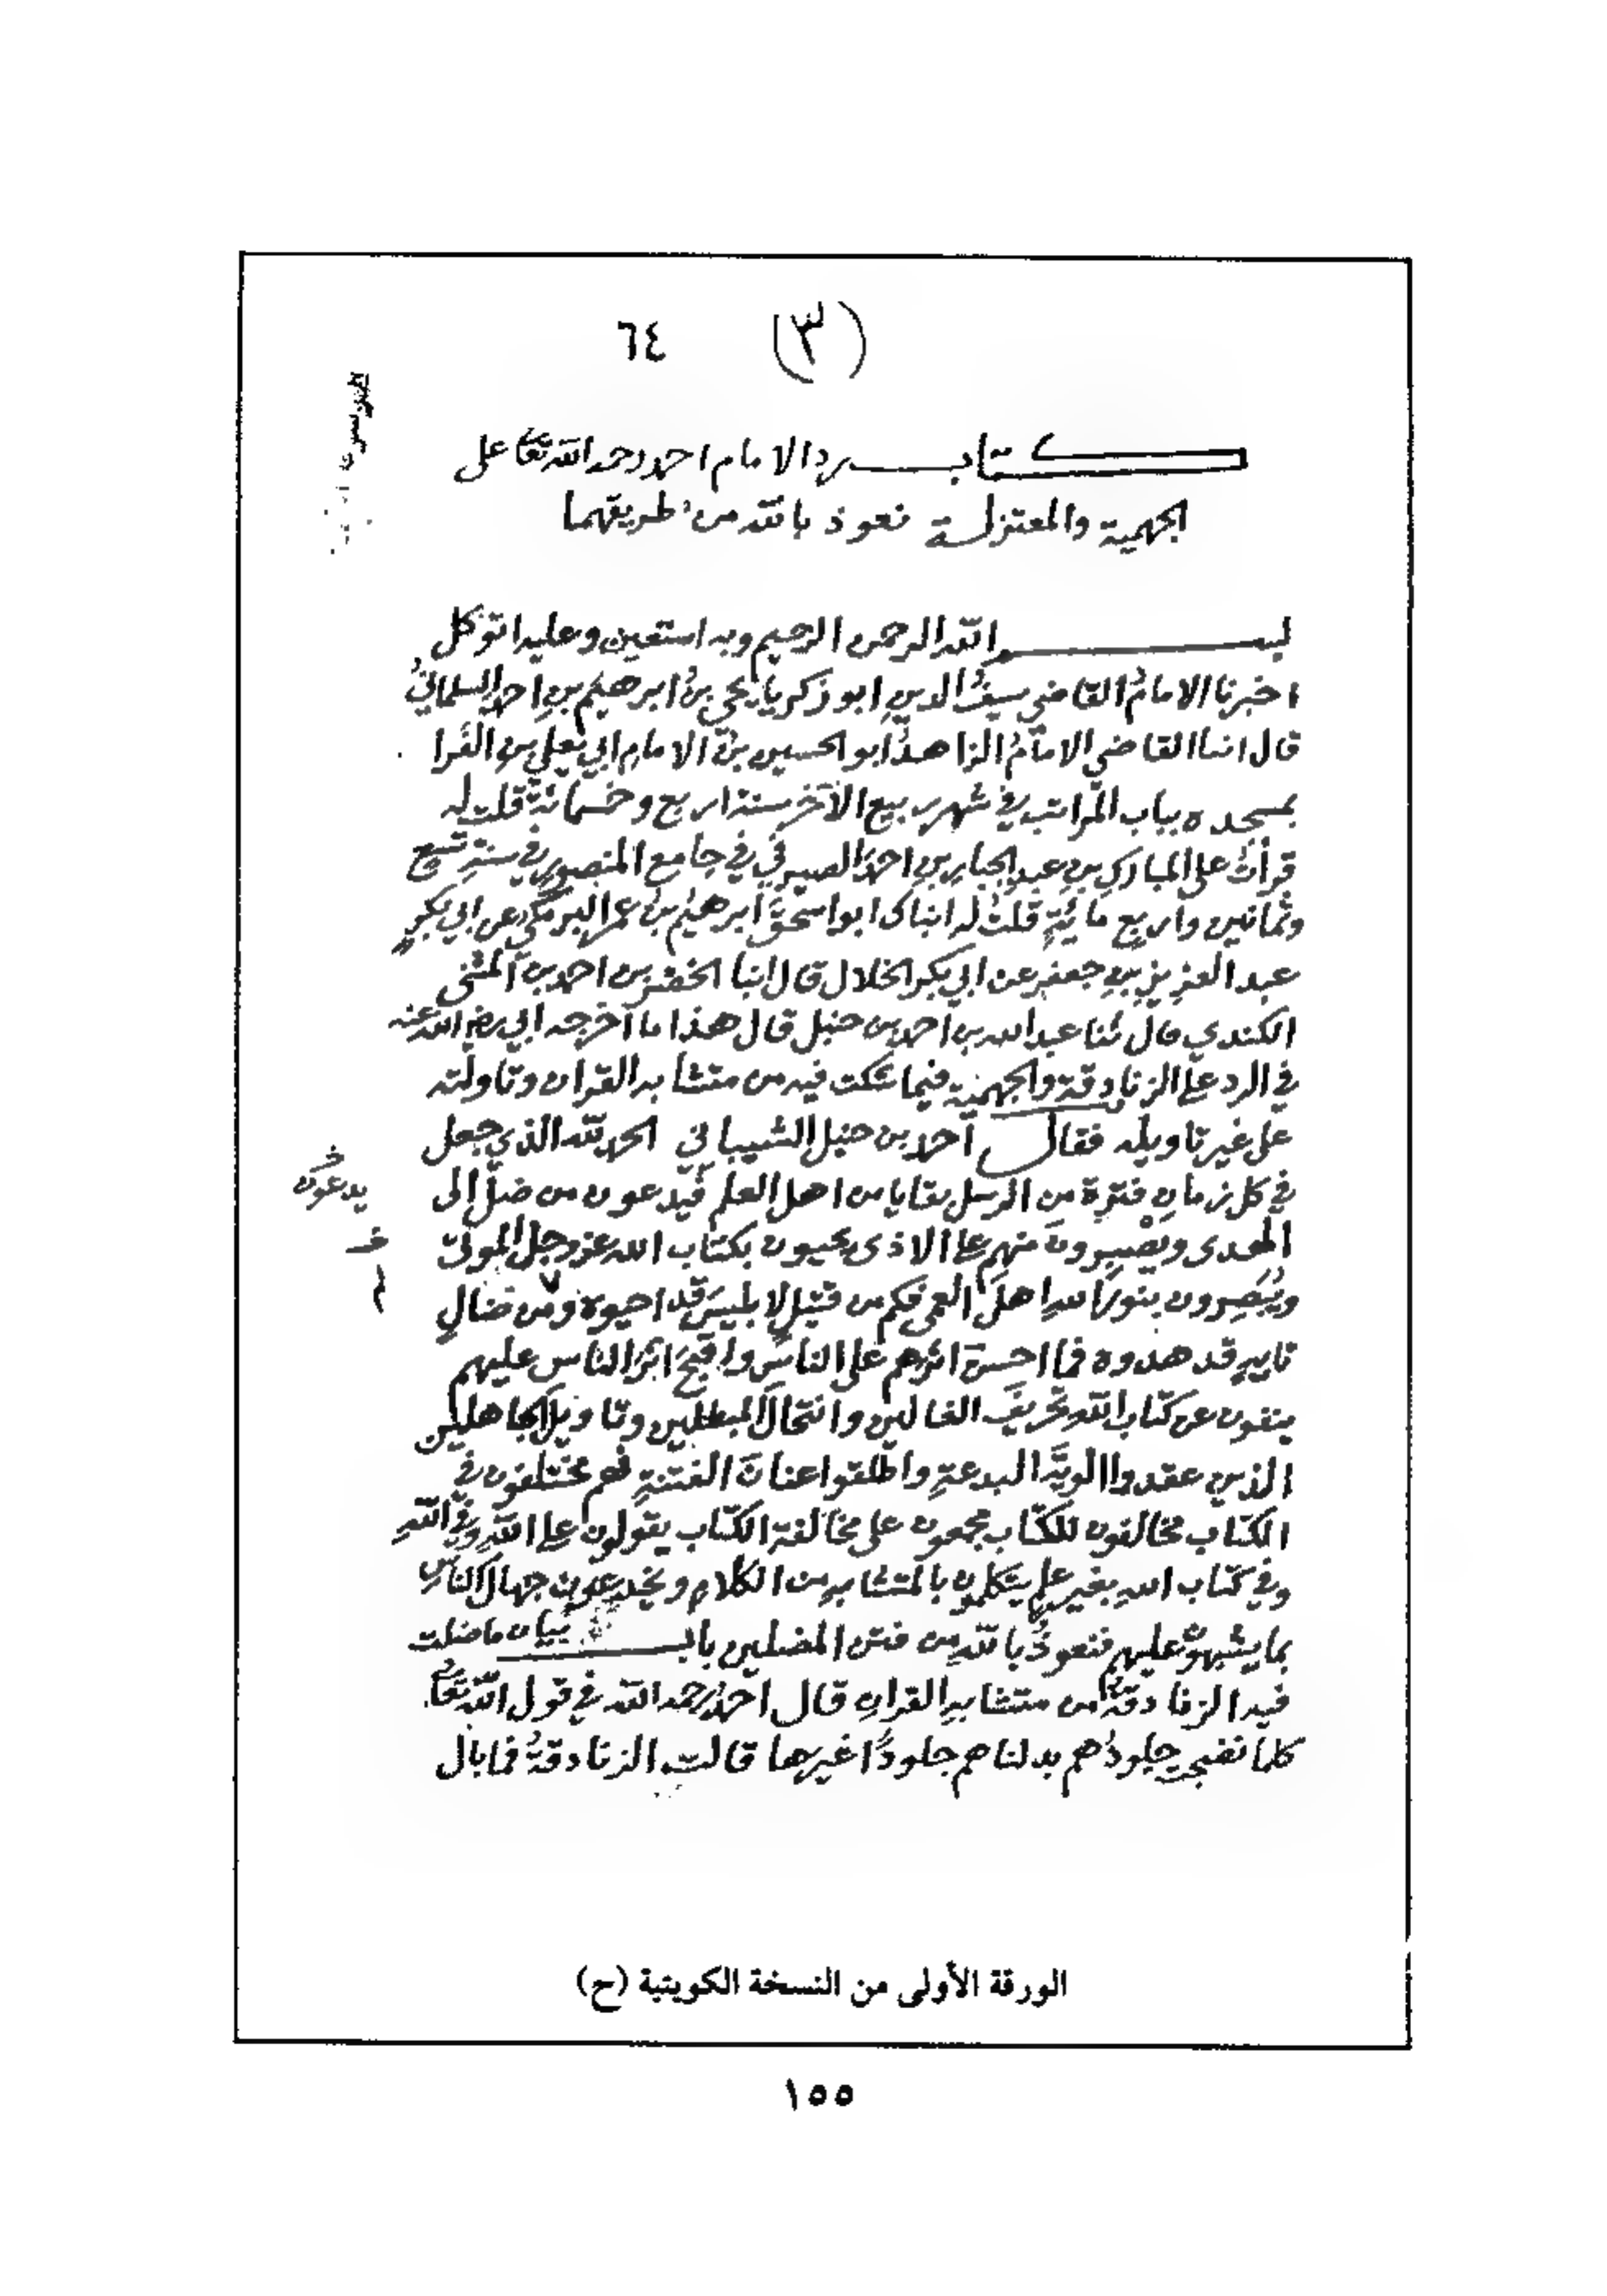 (٣) ٦٤
كتاب رد الامام احمد رحمه الله تعا على
الجهمية والمعتزلة نعوذ بالله من طريقهما
بسم الله الرحمن الرحيم وبه استعين وعليه اتوكل
اخبرنا الامامُ القاضي سيفُ الدينِ ابو زكريا يحي بنُ ابرهيم بنِ احمد السلماني
قال انبا القاضي الامامُ الزاهدُ ابو الحسين بنُ الامام ابي يعلى بن الفرا
بمسجده بباب المراتب في شهر ربيع الآخر سنة اربع وخمسمائة قلت له
قرأتَ على المبارك بنِ عبدِ الجبارِ بنِ احمدَ الصيرفي في جامع المنصور في سنةِ تسع
وثمانين واربع مائةٍ قلتُ له ابناك ابو اسحقَ ابرهيمُ بنُ عمر البرمكي عن ابي بكرٍ
عبد العزيزِ بنِ جعفر عن ابي بكر الخلال قال انبا الخضر بن احمد بن المثنى
الكندي قال ثنا عبد الله بن احمد بن حنبل قال هذا ما اخرجه ابي رضي الله عنه
في الرد على الزنادقة والجهمية فيما شكت فيه من متشابه القران وتاولته
على غير تاويله فقال احمد بن حنبل الشيباني الحمد لله الذي جعل
في كل زمان فترةٍ من الرسل بقايا من اهل العلم فيدعون من ضلَّ الى
يدعون
خ
الهدى ويصبرونَ منهم على الاذى يحيون بكتاب الله عز وجل الموتى
ويُبَصِرون بنورِ اللهِ اهلَ العمى فكم من قتيلٍ لابليسَ قد احيوه ومن ضالٍ
تايهٍ قد هدوه فما احسنَ اثرهم على الناسِ واقبحَ اثرَ الناس عليهم
ينفون عن كتاب الله تحريفَ الغالين وانتحالَ المبطلين وتاويلَ الجاهلين
الذين عقدوا الويةَ البدعةِ واطلقوا عنانَ الفتنةِ فهم مختلفون في
الكتاب مخالفون للكتاب مجمعون على مخالفة الكتاب يقولون على اللهِ وفي اللهِ
وفي كتاب اللهِ بغير علم يتكلمون بالمتشابهِ من الكلام ويخدعون جهالَ الناسِ
بما يشبهون عليهم فنعوذُ باللهِ من فتن المضلين باب بيان ما ضلت
فيه الزنادقةُ من متشابهِ القرانِ قال احمدُ رحمه الله في قول الله تعا
كلما نضجت جلودُهم بدلناهم جلودًا غيرها قالت الزنادقةُ فما بال
الورقة الأولى من النسخة الكويتية (ح)
١٥٥